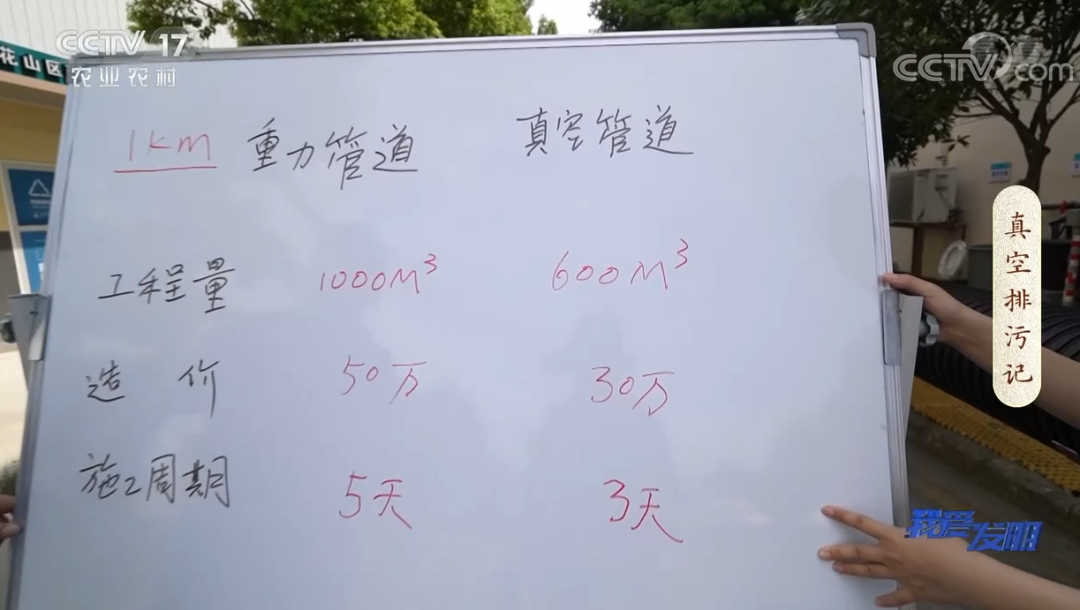 CCTV 17
农业农村
花山区
CCTV.com
1km 重力管道 真空管道
工程量 1000M³ 600M³
造 价 50万 30万
施工周期 5天 3天
真空排污记
我爱发明